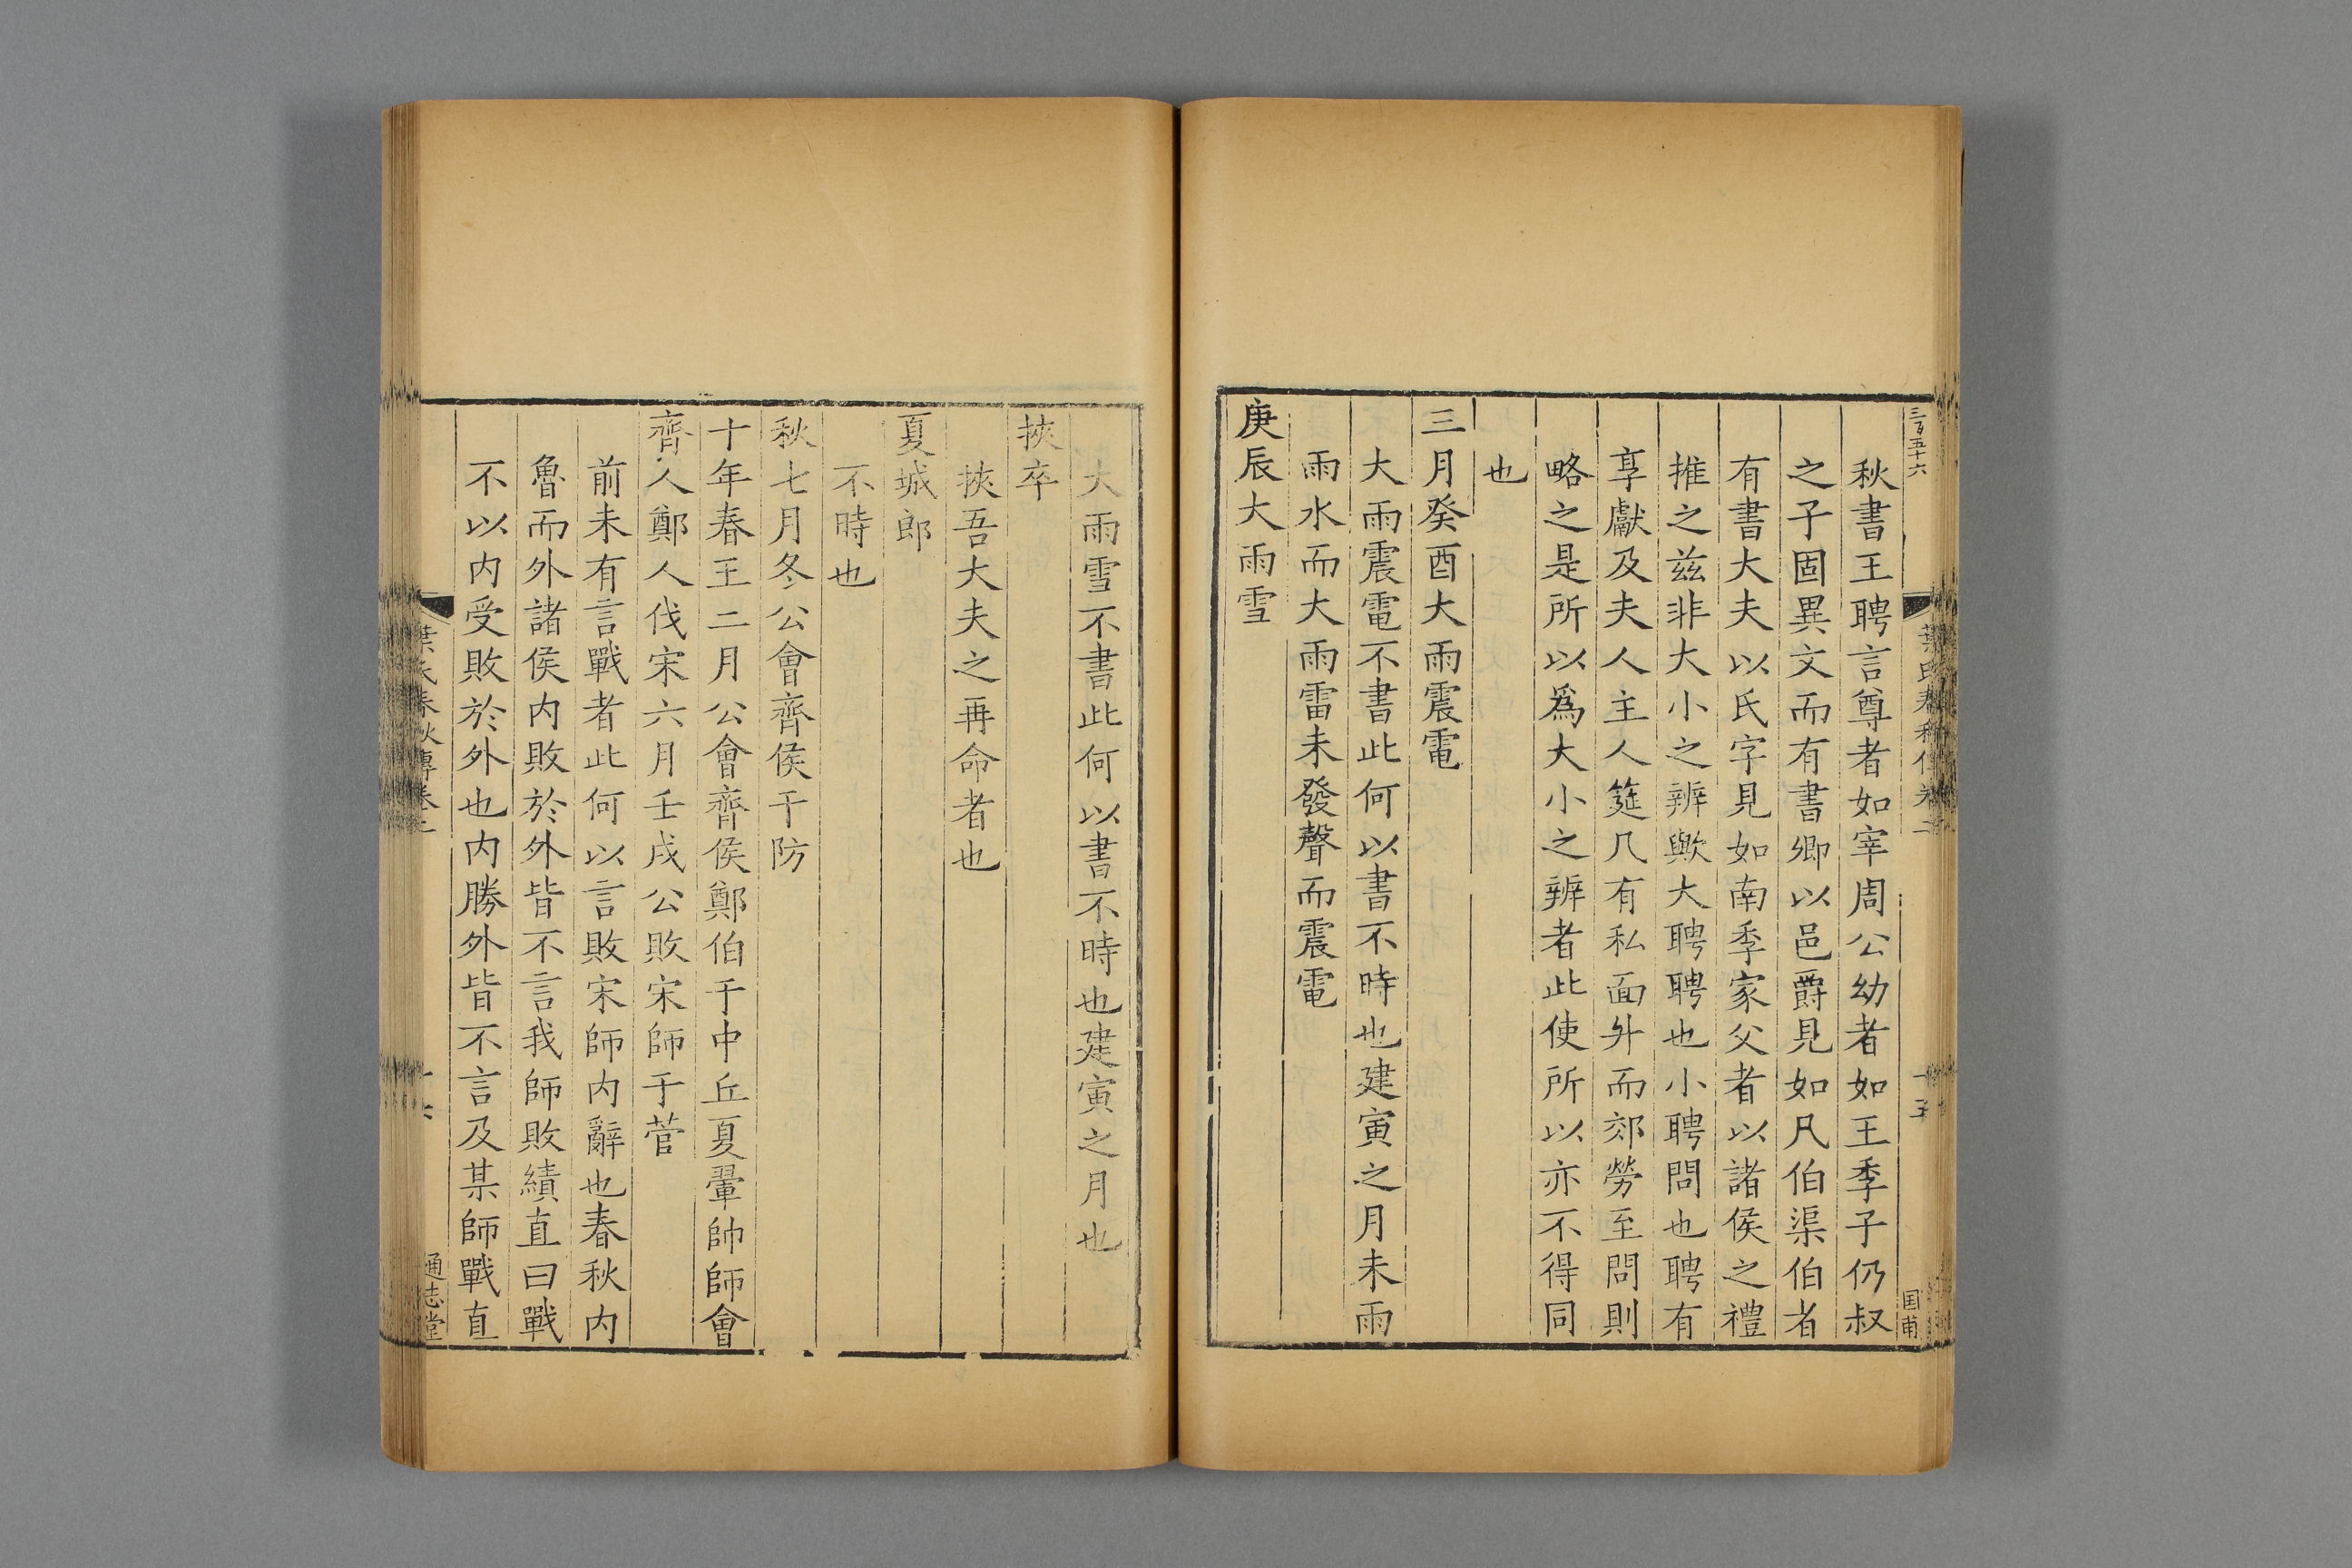 三百五十六
秋書王聘言尊者如宰周公幼者如王季子仍叔
之子固異文而有書卿以邑爵見如凡伯渠伯者
有書大夫以氏字見如南季家父者以諸侯之禮
推之兹非大小之辨歟大聘聘也小聘問也聘有
享獻及夫人主人筵几有私面升而郊勞至問則
略之是所以爲大小之辨者此使所以亦不得同
也
三月癸酉大雨震電
大雨震電不書此何以書不時也建寅之月未雨
雨水而大雨雷未發聲而震電
庚辰大雨雪
大雨雪不書此何以書不時也建寅之月也
挾卒
挾吾大夫之再命者也
夏城郎
不時也
秋七月冬公會齊侯于防
十年春王二月公會齊侯鄭伯于中丘夏翬帥師會
齊人鄭人伐宋六月壬戌公敗宋師于菅
前未有言戰者此何以言敗宋師内辭也春秋内
魯而外諸侯内敗於外皆不言我師敗績直曰戰
不以内受敗於外也内勝外皆不言及某師戰直
葉氏春秋傳卷二
十六
通志堂